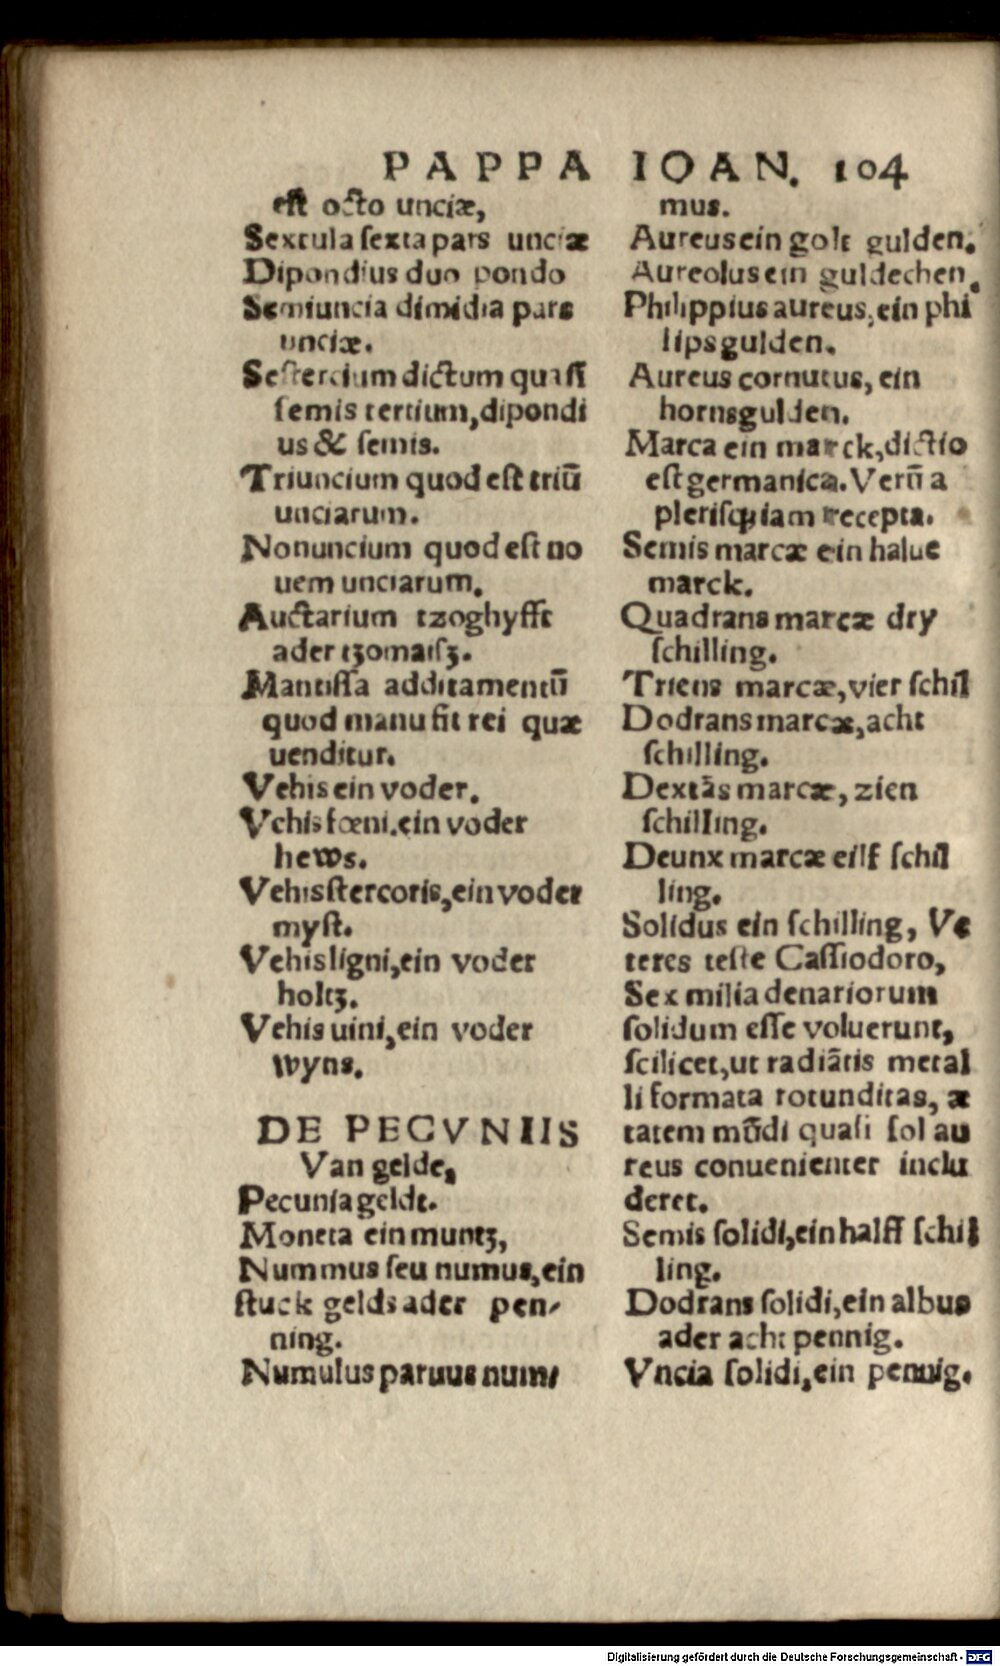 PAPPA IOAN. 104
est octo unciæ,
Sextula sexta pars unciæ
Dipondius duo pondo
Semiuncia dimidia pars
unciæ.
Sestercium dictum quasi
semis tertium, dipondi
us & semis.
Triuncium quod est triū
unciarum.
Nonuncium quod est no
uem unciarum.
Auctarium tzoghyfft
ader tzomaisz.
Mantissa additamentū
quod manu fit rei quæ
uenditur.
Vehis ein voder.
Vehis fœni, ein voder
hews.
Vehis stercoris, ein voder
myst.
Vehis ligni, ein voder
holtz.
Vehis uini, ein voder
wyns.
DE PECVNIIS
Van gelde,
Pecunia geldt.
Moneta ein muntz,
Nummus seu numus, ein
stuck gelds ader pen-
ning.
Numulus paruus num-
mus.
Aureus ein golt gulden.
Aureolus ein guldechen.
Philippius aureus, ein phi
lips gulden.
Aureus cornutus, ein
hornsgulden.
Marca ein marck, dictio
est germanica. Verū a
plerisqꝫ iam recepta.
Semis marcæ ein halue
marck.
Quadrans marcæ dry
schilling.
Triens marcæ, vier schil
Dodrans marcæ, acht
schilling.
Dextās marcæ, zien
schilling.
Deunx marcæ eilf schil
ling.
Solidus ein schilling, Ve
teres teste Cassiodoro,
Sex milia denariorum
solidum esse voluerunt,
scilicet, ut radiātis metal
li formata rotunditas, æ
tatem mūdi quasi sol au
reus conuenienter inclu
deret.
Semis solidi, ein halff schil
ling.
Dodrans solidi, ein albus
ader acht pennig.
Vncia solidi, ein pennig.
Digitalisierung gefördert durch die Deutsche Forschungsgemeinschaft - DFG